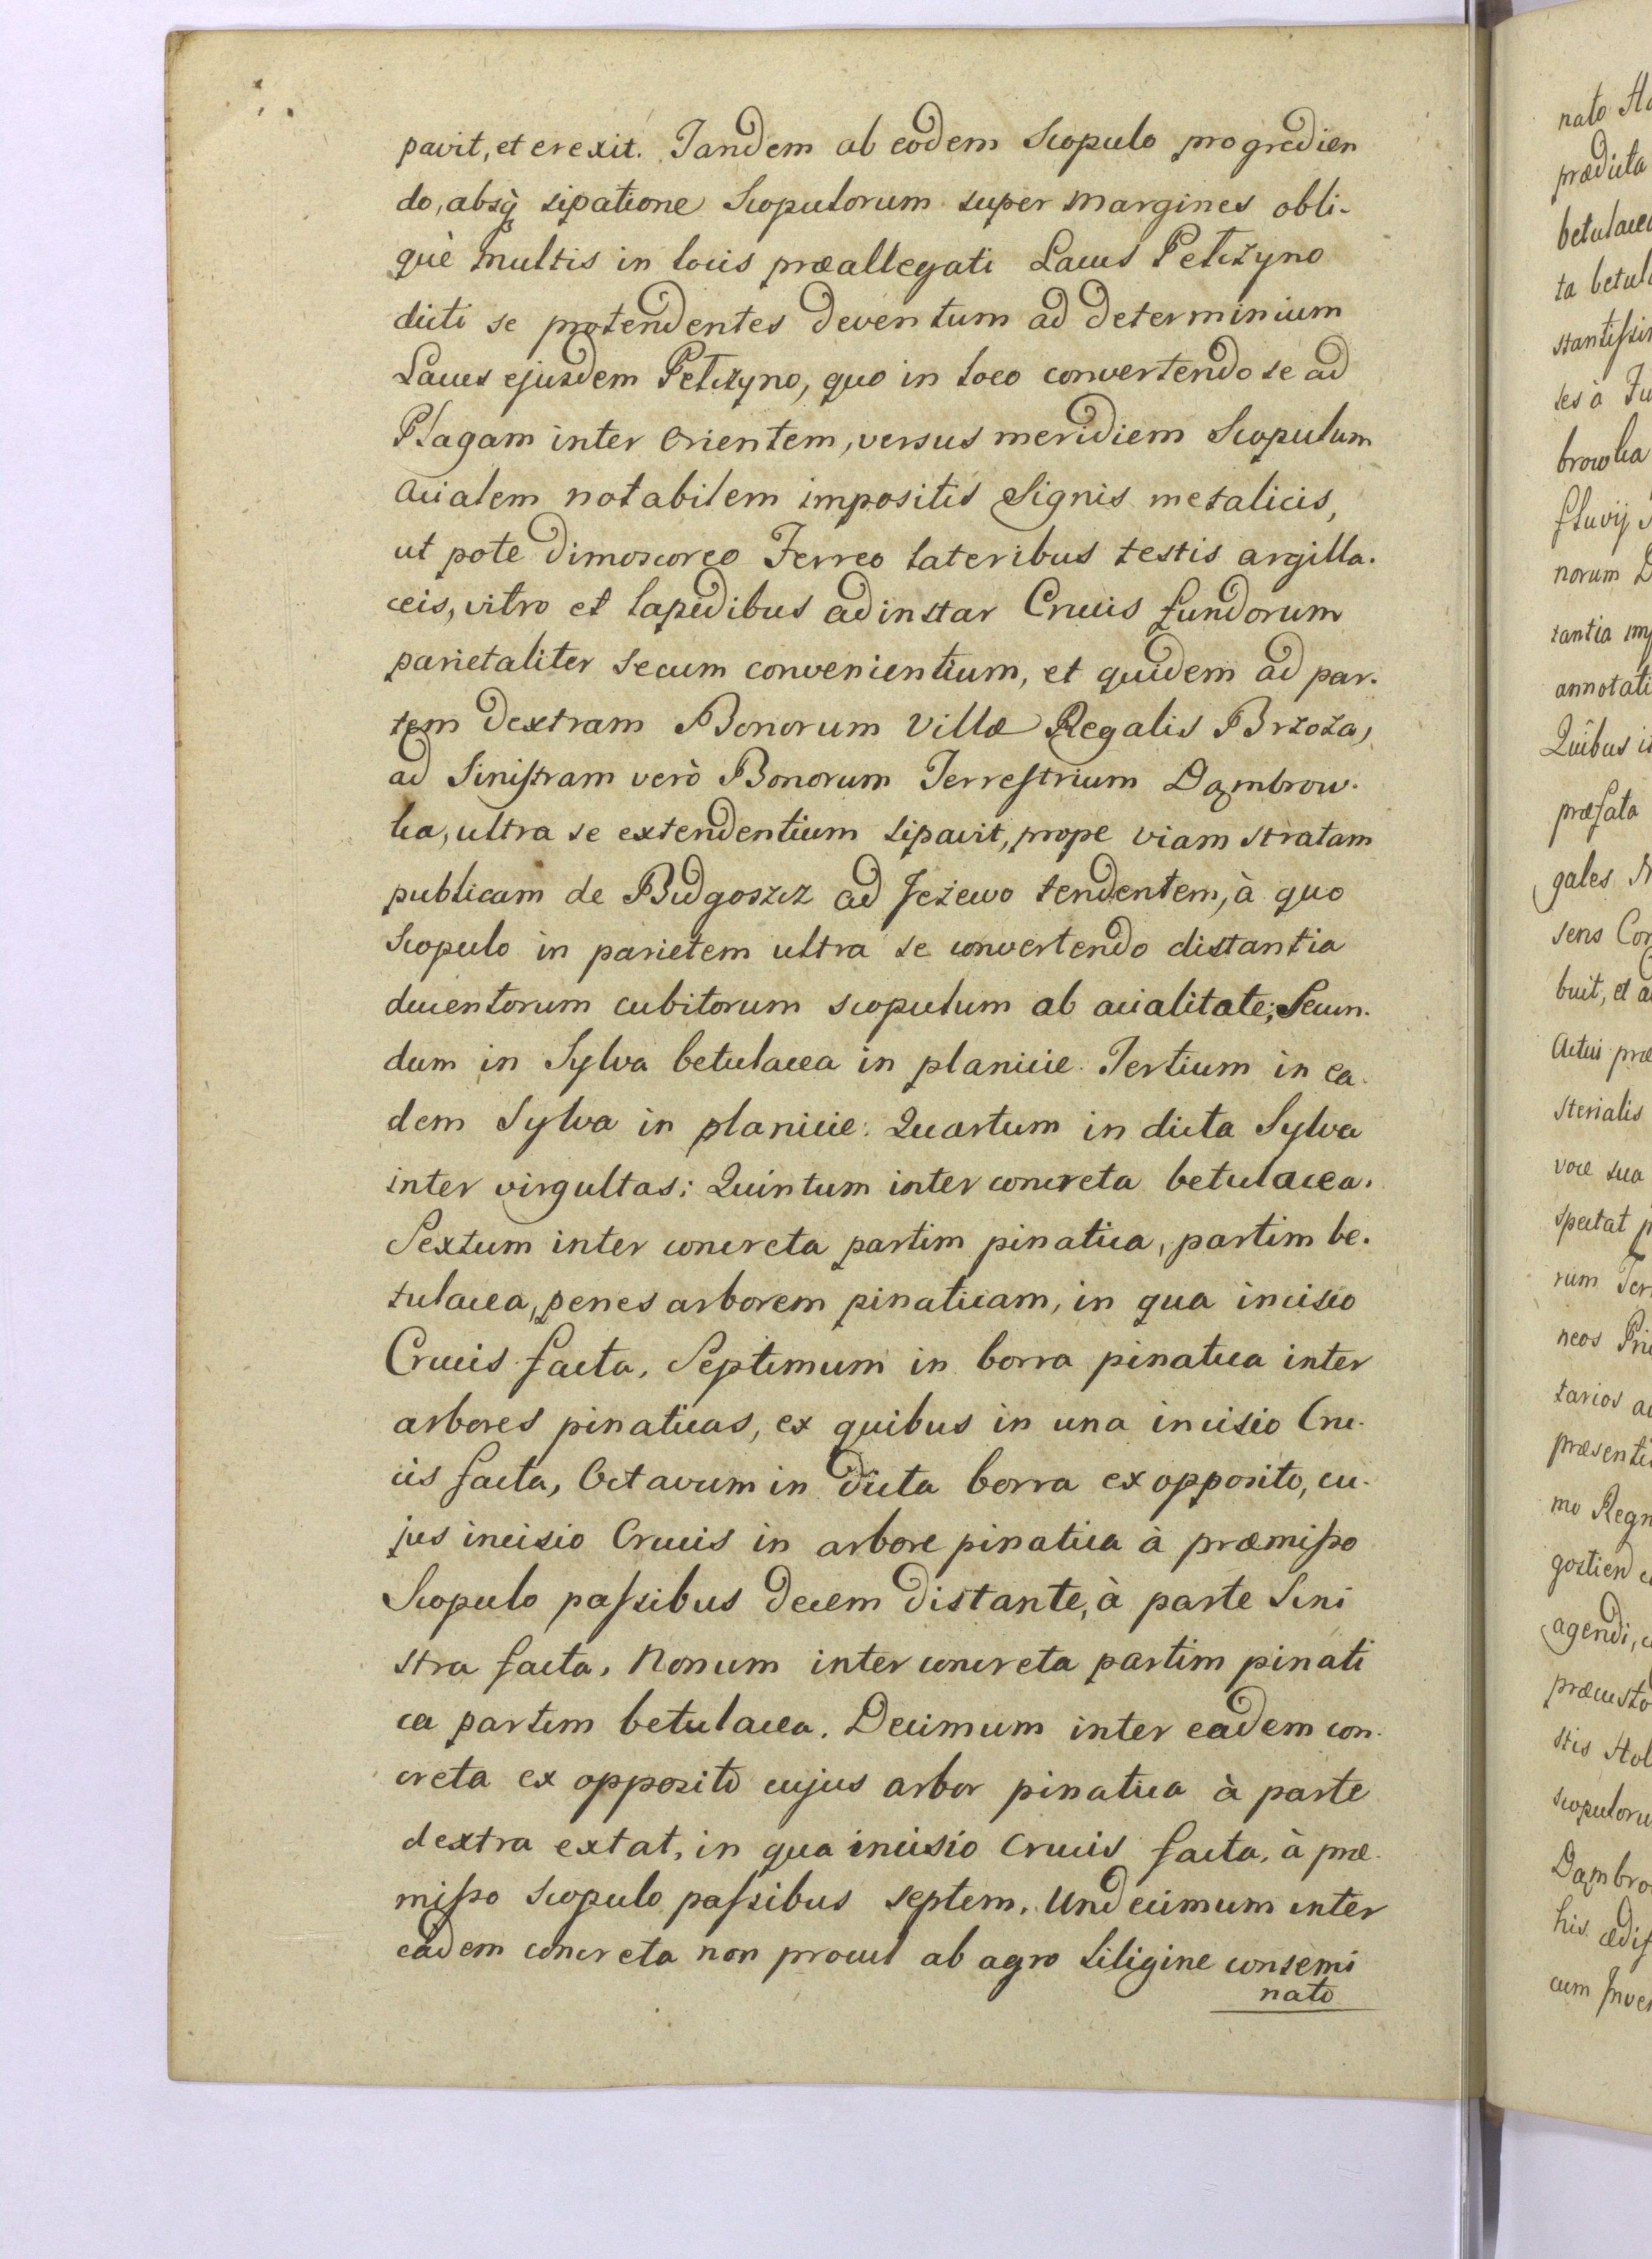 pavit, et erexit. Tandem ab eodem Scopulo progredien
do, absq̀ sipatione Scopulorum super Margines obli-
què multis in locis præallegati Lacus Petczyno
dicti se protendentes deventum ad determinium
Lacus ejusdem Petczyno, quo in loco convertendo se ad
Plagam inter Orientem, versus meridiem Scopulum
Acialem notabilem impositis Signis metalicis,
ut pote dimoscoreo Ferreo lateribus testis argilla-
ceis, vitro et lapidibus ad instar Crucis fundorum
parietaliter secum convenientium, et quidem ad par-
tem dextram Bonorum Villæ Regalis Brzoza,
ad Siniſtram verò Bonorum Terreſtrium Dąmbrow-
ka, ultra se extendentium sipavit, prope viam stratam
publicam de Bidgoszcz ad Jeżewo tendentem, à quo
Scopulo in parietem ultra se convertendo distantia
ducentorum cubitorum scopulum ab acialitate; Secun-
dum in Sylva betulacea in planicie. Tertium in ea-
dem Sylva in planicie: Quartum in dicta Sylva
inter virgultas; Quintum inter concreta betulacea.
Sextum inter concreta partim pinatica, partim be-
tulacea, penes arborem pinaticam, in qua incisio
Crucis facta, Septimum in borra pinatica inter
arbores pinaticas, ex quibus in una incisio Cru-
cis facta, Octavum in dicta borra ex opposito, cu-
jus incisio Crucis in arbore pinatica à præmiſso
Scopulo paſsibus decem distante, à parte Sini
stra facta, Nonum inter concreta partim pinati
ca partim betulacea. Decimum inter eadem con-
creta ex opposito cujus arbor pinatica à parte
dextra extat, in qua incisio Crucis facta, à præ-
miſso scopulo paſsibus septem, Undecimum inter
eadem concreta non procul ab agro Siligine consemi
nato
nato
prædicta
ta
ses à
fluvij
norum
Quibus
præfata
gales
sens
buit, et
Actui
sterialis
voce sua
spectat
rum
neos
tarios
mo
agendi,
his
cum